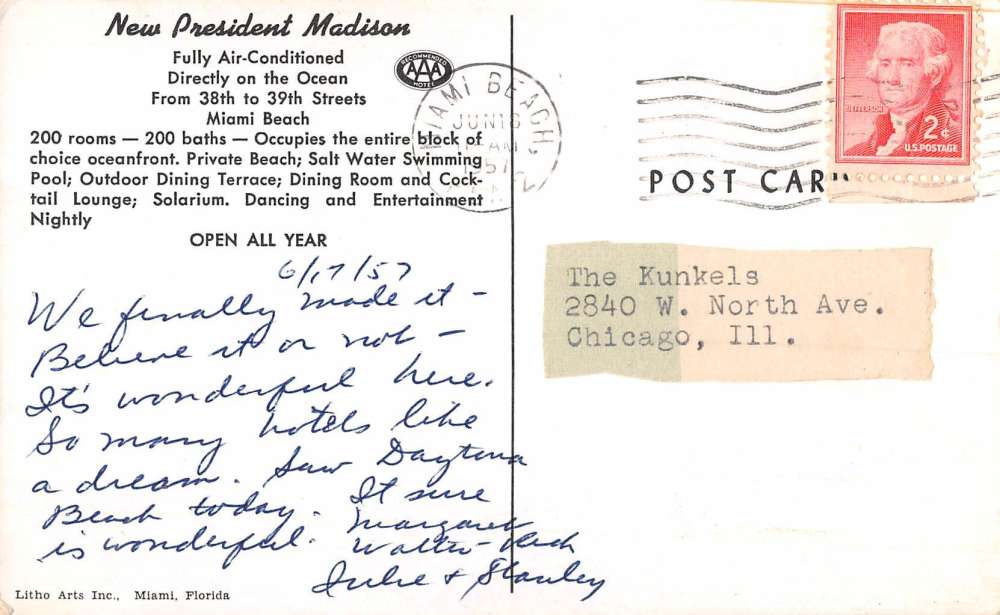 New President Madison
Fully Air-Conditioned
Directly on the Ocean
From 38th to 39th Streets
Miami Beach
RECOMMENDED
AAA
HOTEL
200 rooms — 200 baths — Occupies the entire block of
choice oceanfront. Private Beach; Salt Water Swimming
Pool; Outdoor Dining Terrace; Dining Room and Cock-
tail Lounge; Solarium. Dancing and Entertainment
Nightly
OPEN ALL YEAR
6/17/57
We finally made it –
Believe it or not –
It's wonderful here.
So many hotels like
a dream. Saw Daytona
Beach today. It sure
is wonderful.
Margaret
Walter
Julie + Stanley
Litho Arts Inc., Miami, Florida
MIAMI BEACH,
JUN 18
AM
1957
JEFFERSON
2¢
U.S. POSTAGE
POST CAR
The Kunkels
2840 W. North Ave.
Chicago, Ill.